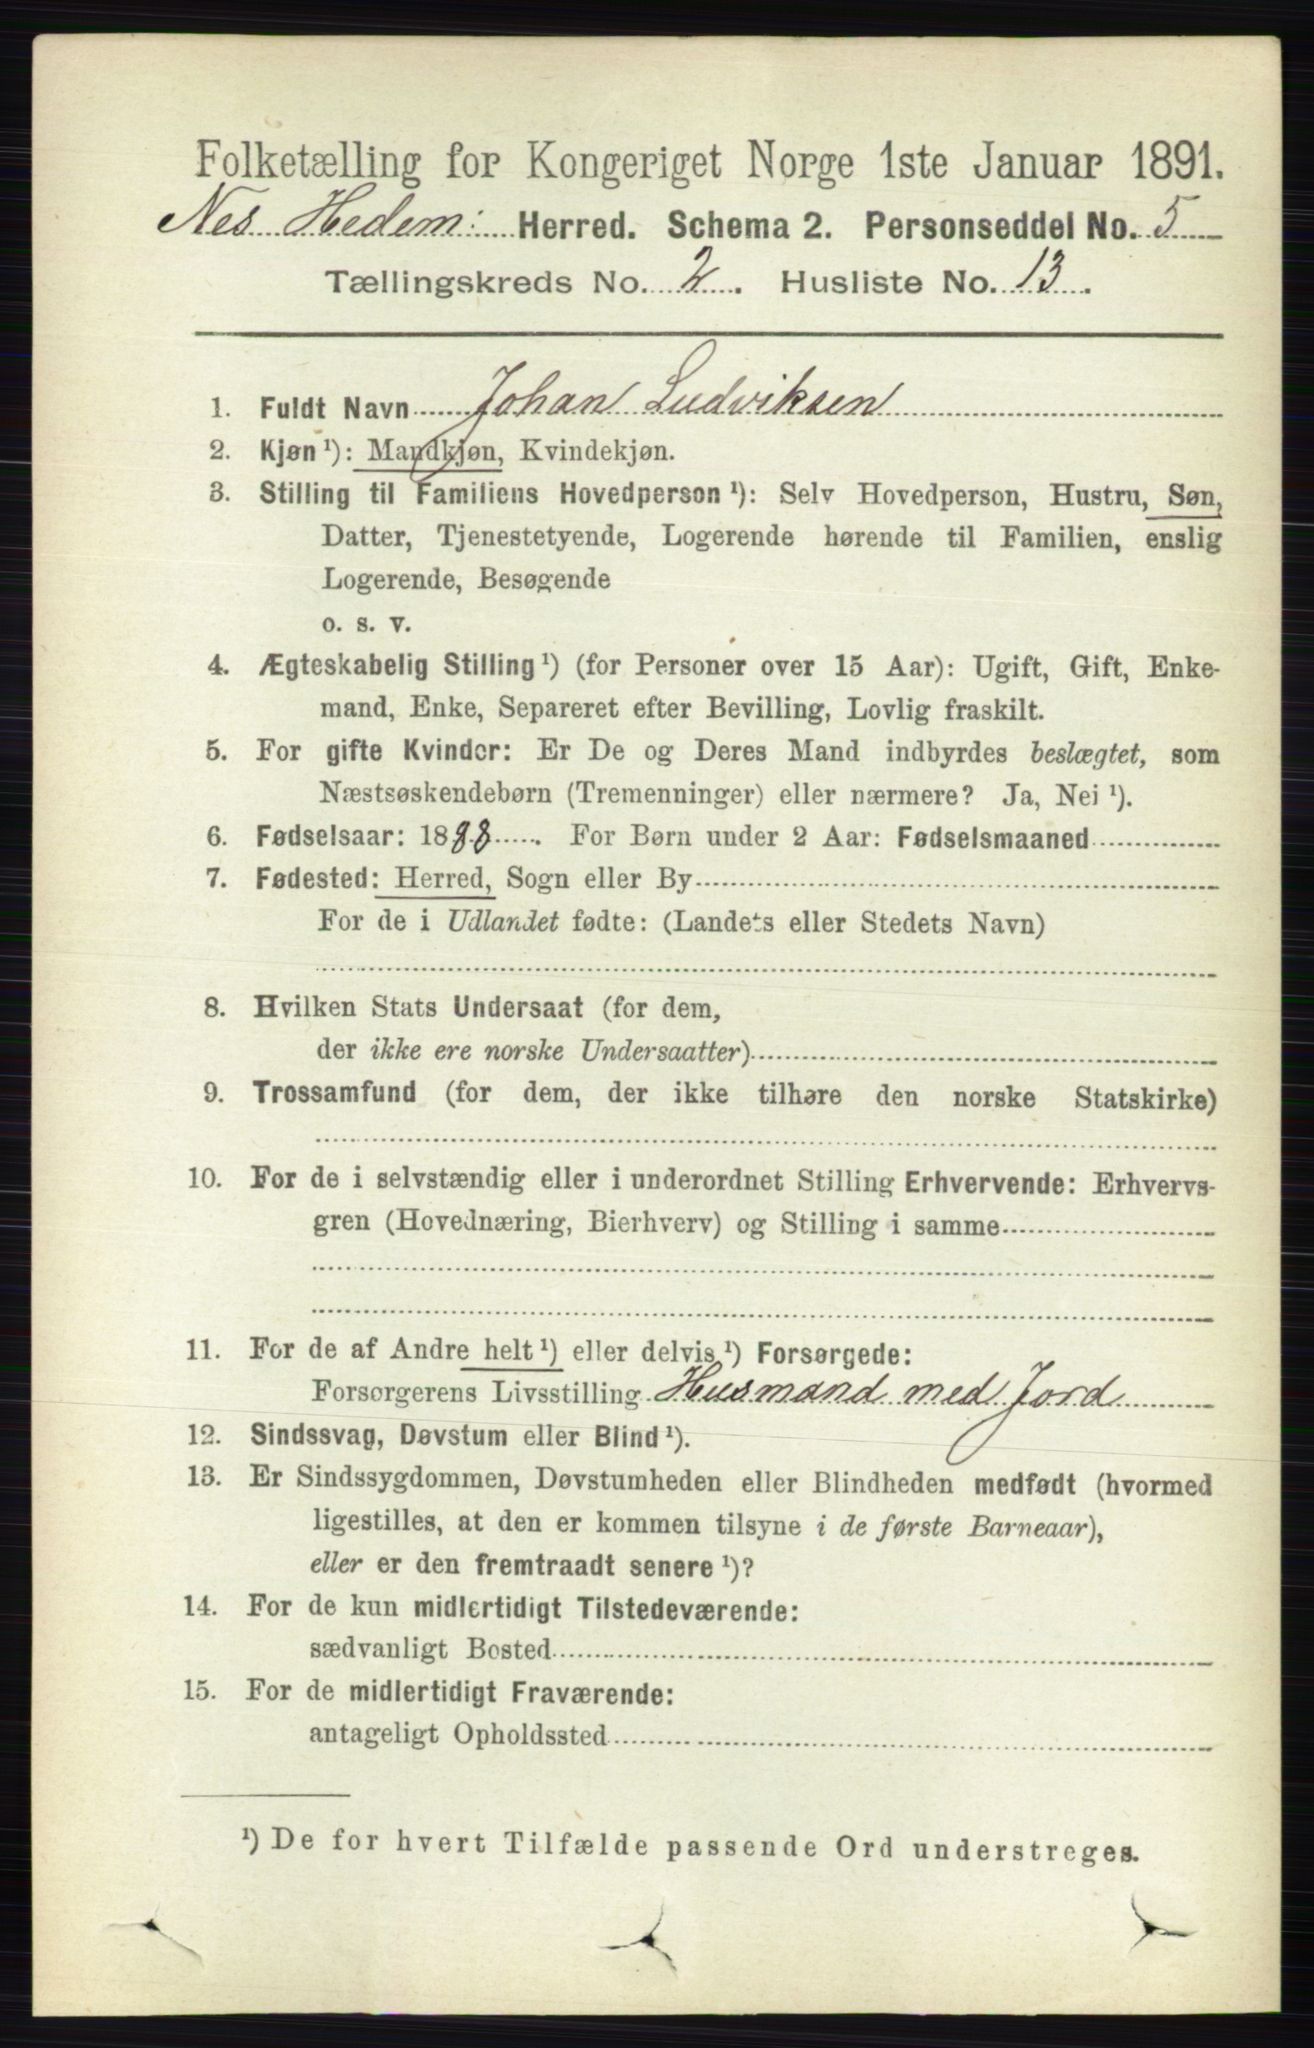 Folketælling for Kongeriget Norge 1ste Januar 1891.
Nes Hedem: Herred. Schema 2. Personseddel No. 5
Tællingskreds No. 2. Husliste No. 13.
1. Fuldt Navn Johan Ludviksen
2. Kjøn ¹): Mandkjøn, Kvindekjøn.
3. Stilling til Familiens Hovedperson ¹): Selv Hovedperson, Hustru, Søn,
Datter, Tjenestetyende, Logerende hørende til Familien, enslig
Logerende, Besøgende
o. s. v.
4. Ægteskabelig Stilling ¹) (for Personer over 15 Aar): Ugift, Gift, Enke-
mand, Enke, Separeret efter Bevilling, Lovlig fraskilt.
5. For gifte Kvinder: Er De og Deres Mand indbyrdes beslægtet, som
Næstsøskendebørn (Tremenninger) eller nærmere? Ja, Nei ¹).
6. Fødselsaar: 1888. For Børn under 2 Aar: Fødselsmaaned
7. Fødested: Herred, Sogn eller By
For de i Udlandet fødte: (Landets eller Stedets Navn)
8. Hvilken Stats Undersaat (for dem,
der ikke ere norske Undersaatter)
9. Trossamfund (for dem, der ikke tilhøre den norske Statskirke)
10. For de i selvstændig eller i underordnet Stilling Erhvervende: Erhvervs-
gren (Hovednæring, Bierhverv) og Stilling i samme
11. For de af Andre helt ¹) eller delvis ¹) Forsørgede:
Forsørgerens Livsstilling Husmand med Jord
12. Sindssvag, Døvstum eller Blind ¹).
13. Er Sindssygdommen, Døvstumheden eller Blindheden medfødt (hvormed
ligestilles, at den er kommen tilsyne i de første Barneaar),
eller er den fremtraadt senere ¹)?
14. For de kun midlertidigt Tilstedeværende:
sædvanligt Bosted
15. For de midlertidigt Fraværende:
antageligt Opholdssted
¹) De for hvert Tilfælde passende Ord understreges.